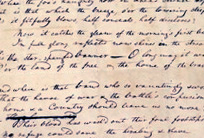 that which the breeze, o'er the towering steep,
As it fitfully blows, half conceals, half discloses?
Now it catches the gleam of the morning's first beam,
In full glory reflected now shines in the stream,
the star-spangled banner — O long may it wave
O'er the land of the free & the home of the brave
where is that band who so vauntingly swore,
That the havoc of war & the battle's confusion
A home & a Country should leave us no more?
blood has wash'd out their foul footstep's
No refuge could save the hireling & slave